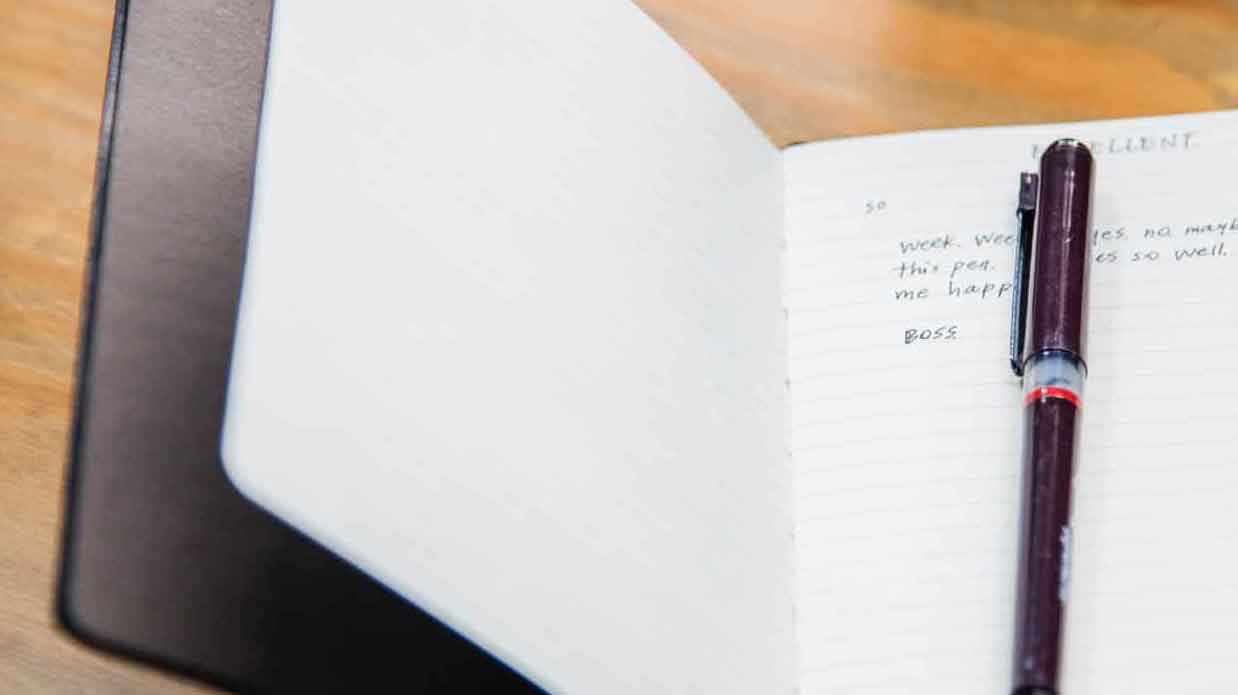 ELLENT
so
week. Wee yes, no mayb
this pen. es so well.
me happ
BOSS